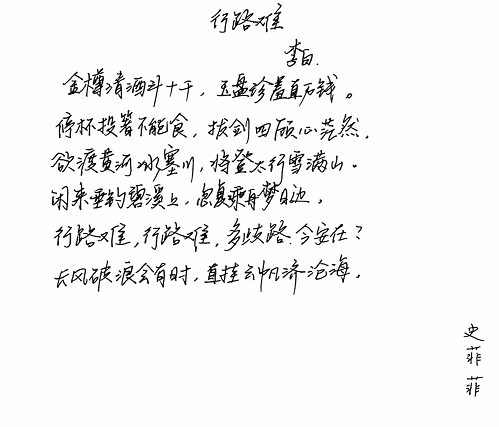 行路难
李白.
金樽清酒斗十千，玉盘珍羞直万钱。
停杯投箸不能食，拔剑四顾心茫然，
欲渡黄河冰塞川，将登太行雪满山。
闲来垂钓碧溪上，忽复乘舟梦日边，
行路难，行路难，多歧路.今安在？
长风破浪会有时，直挂云帆济沧海，
史菲菲